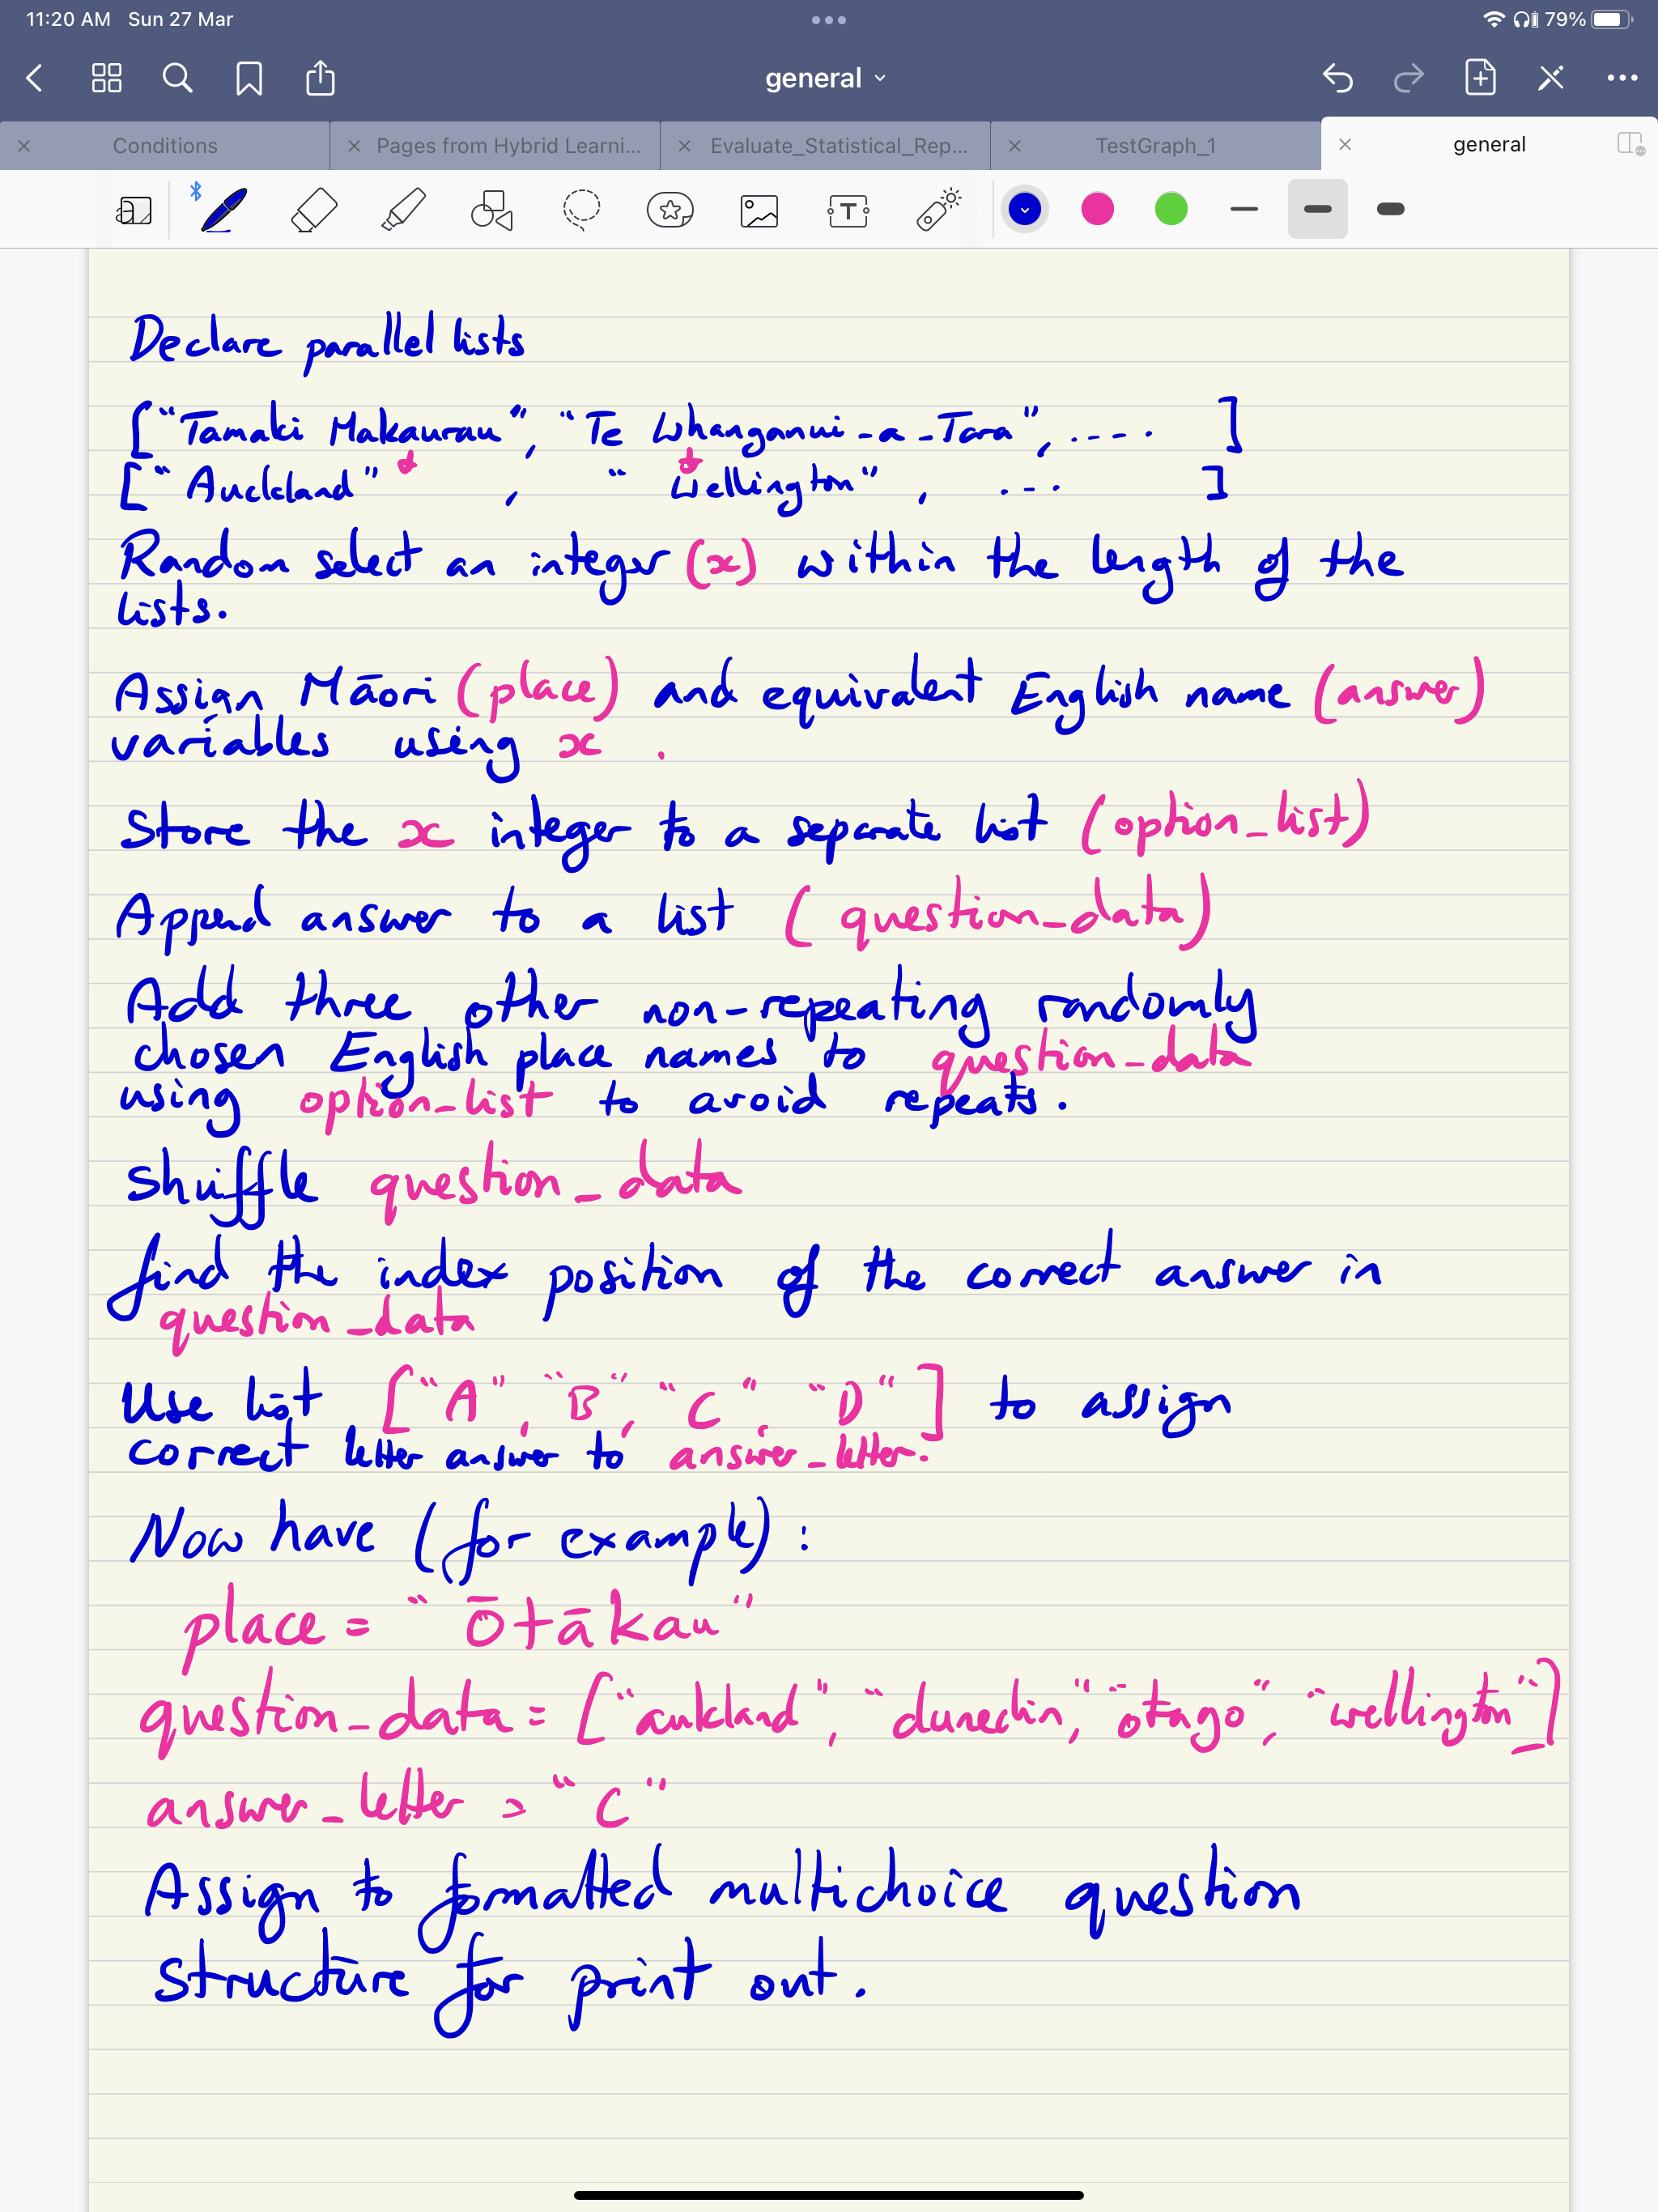 11:20 AM Sun 27 Mar
79%
general
Conditions
Pages from Hybrid Learni...
Evaluate_Statistical_Rep...
TestGraph_1
general
Declare parallel lists
["Tamaki Makaurau", "Te Whanganui-a-Tara", .... ]
["Auckland" , "Wellington" , ... ]
Random select an integer (x) within the length of the
lists.
Assign Māori (place) and equivalent English name (answer)
variables using x .
Store the x integer to a separate list (option_list)
Append answer to a list (question_data)
Add three other non-repeating randomly
chosen English place names to question_data
using option_list to avoid repeats.
Shuffle question_data
find the index position of the correct answer in
question_data
Use list ["A", "B", "C", "D"] to assign
correct letter answer to answer_letter.
Now have (for example):
place = "Ōtākau"
question_data = ["aukland", "dunedin", "otago", "wellington"]
answer_letter = "C"
Assign to formatted multichoice question
structure for print out.